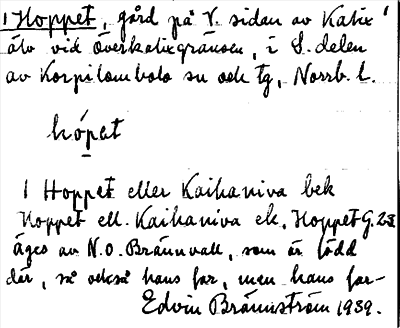 1 Hoppet, gård på V. sidan av Kalix
älv vid Överkalixgränsen, i S. delen
av Korpilombolo sn och tg, Norrb. l.
hópet
1 Hoppet eller Kaihaniva bek
Hoppet ell. Kaihaniva ek, Hoppet G. 23
äges av N.O. Brännvall, som är född
där, så också hans far, men hans far-
Edvin Brännström 1939.